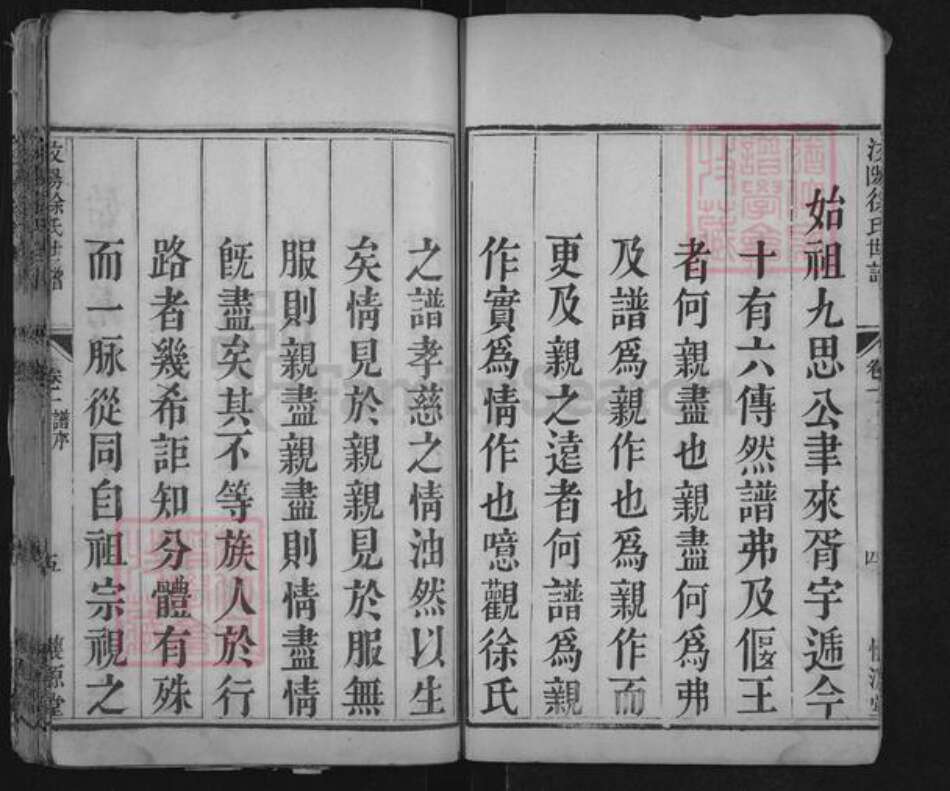 徐氏世譜
卷
四
始祖九思公聿來胥宇遞今
十有六傳然譜弗及偃王
者何親盡也親盡何為弗
及譜為親作也為親作而
更及親之遠者何譜為親
作實為情作也噫觀徐氏
之譜孝慈之情油然以生
矣情見於親親見於服無
服則親盡親盡則情盡情
旣盡矣其不等族人於行
路者幾希詎知分體有殊
而一脉從同自祖宗視之
徐氏世譜
卷
譜序
五
源堂